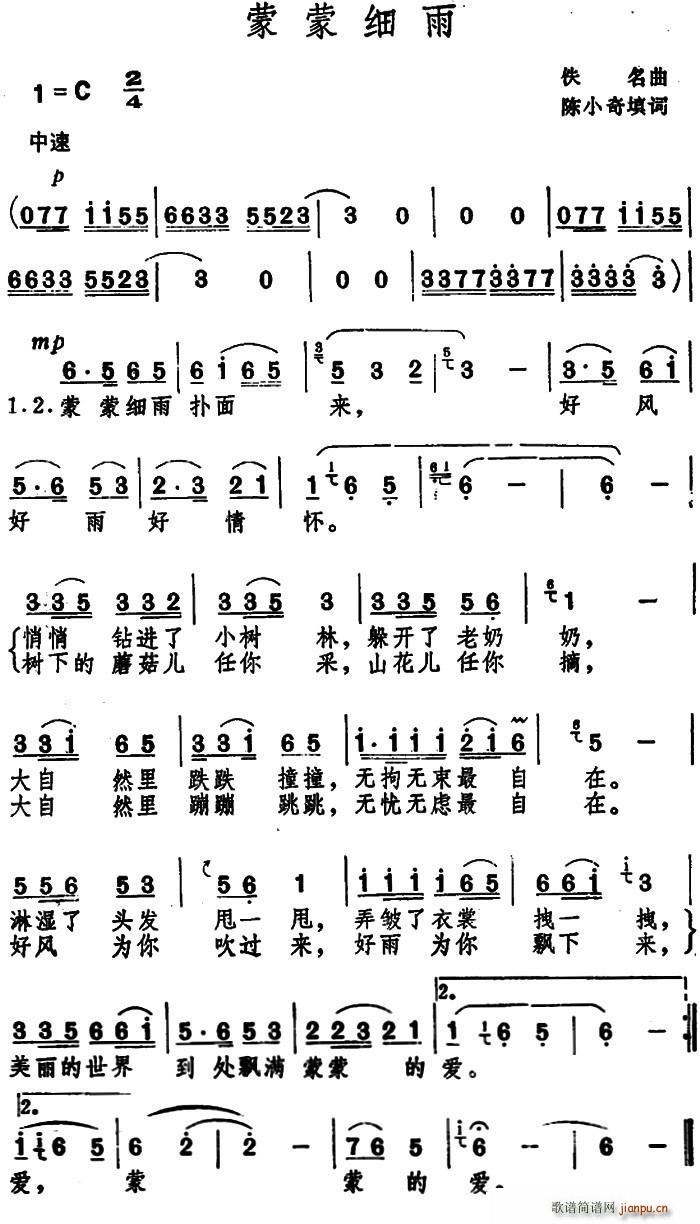 蒙蒙细雨
1=C 2/4
佚 名曲
陈小奇填词
中速
p
(077 ii55 | 6633 5523 | 3 0 | 0 0 | 077 ii55 |
6633 5523 | 3 0 | 0 0 | 3377 3377 | 3333 3) |
mp
6·5 65 | 6 i 65 | 5 3 2 | 3 － | 3·5 6i |
1.2.蒙 蒙细雨 扑面 来， 好 风
5·6 53 | 2·3 21 | 1 6 5 | 6 － | 6 － |
好 雨 好 情 怀。
335 332 | 335 3 | 335 56 | 1 － |
悄悄 钻进了 小树 林，躲开了 老奶 奶，
树下的 蘑菇儿 任你 采，山花儿 任你 摘，
33i 65 | 33i 65 | i·iii 2i6 | 5 － |
大自 然里 跌跌 撞撞，无拘无束最 自 在。
大自 然里 蹦蹦 跳跳，无忧无虑最 自 在。
556 53 | 56 1 | iiii i65 | 66i 3 |
淋湿了 头发 甩一 甩， 弄皱了衣裳 拽一 拽，
好风 为你 吹过 来，好雨 为你 飘下 来，
335 66i | 5·6 53 | 2232 21 | 2. 1 6 5 | 6 － :|
美丽的世界 到 处飘满 蒙蒙 的 爱。
2.
i i 6 5 | 6 2 | 2 － | 76 5 | 6 － | － － ‖
爱， 蒙 蒙 的 爱。
歌谱简谱网 jianpu.cn